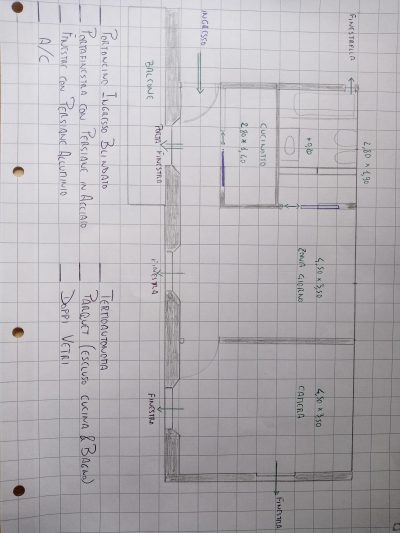 FINESTRELLA
2,80 x 1,90
4,50 x 3,50
ZONA GIORNO
4,50 x 3,50
CAMERA
FINESTRA
CUCINOTTO
2,80 x 1,60
INGRESSO
BALCONE
PORTA FINESTRA
FINESTRA
FINESTRA
— PORTONCINO INGRESSO BLINDATO
— PORTAFINESTRA CON PERSIANE IN ACCIAIO
— FINESTRE CON PERSIANE ALLUMINIO
— A/C
— TERMOAUTONOMA
— PARQUET (ESCLUSO CUCINA & BAGNO)
— DOPPI VETRI